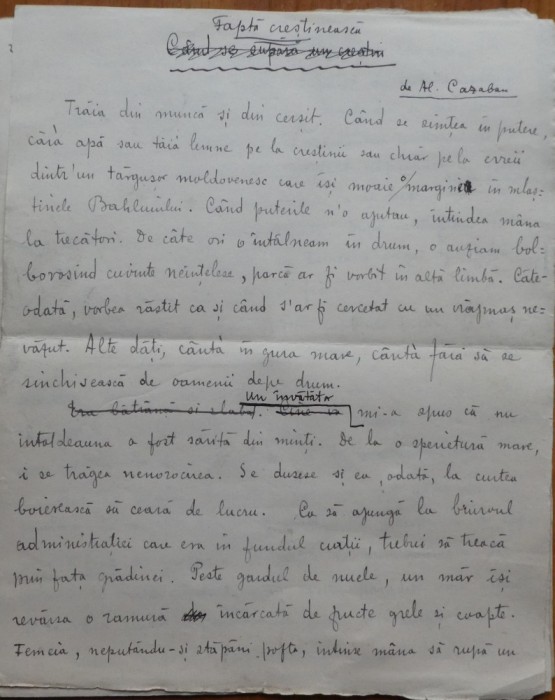 Faptă creștinească
Când se supără un creștin
de Al. Cazaban
Trăia din muncă și din cerșit. Când se simțea în putere,
căra apă sau tăia lemne pe la creștinii sau chiar pe la evreii
dintr'un târgușor moldovenesc care își moaie o margine în mlaș-
tinele Bahluiului. Când puterile n'o ajutau, întindea mâna
la trecători. De câte ori o întâlneam în drum, o auziam bol-
borosind cuvinte neînțelese, parcă ar fi vorbit în altă limbă. Câte-
odată, vorbea răstit ca și când s'ar fi cercetat cu un vrăjmaș ne-
văzut. Alte dăți, cânta în gura mare, cânta fără să se
sinchisească de oamenii depe drum.
Era bătrână și slabă. Un învățător mi-a spus că nu
întotdeauna a fost sărită din minți. De la o sperietură mare,
i se trăgea nenorocirea. Se dusese și ea, odată, la curtea
boierească să ceară de lucru. Ca să ajungă la biuroul
administrației care era în fundul curții, trebui să treacă
prin fața grădinei. Peste gardul de nuele, un măr își
revărsa o ramură încărcată de fructe grele și coapte.
Femeia, neputându-și stăpâni pofta, întinse mâna să rupă un